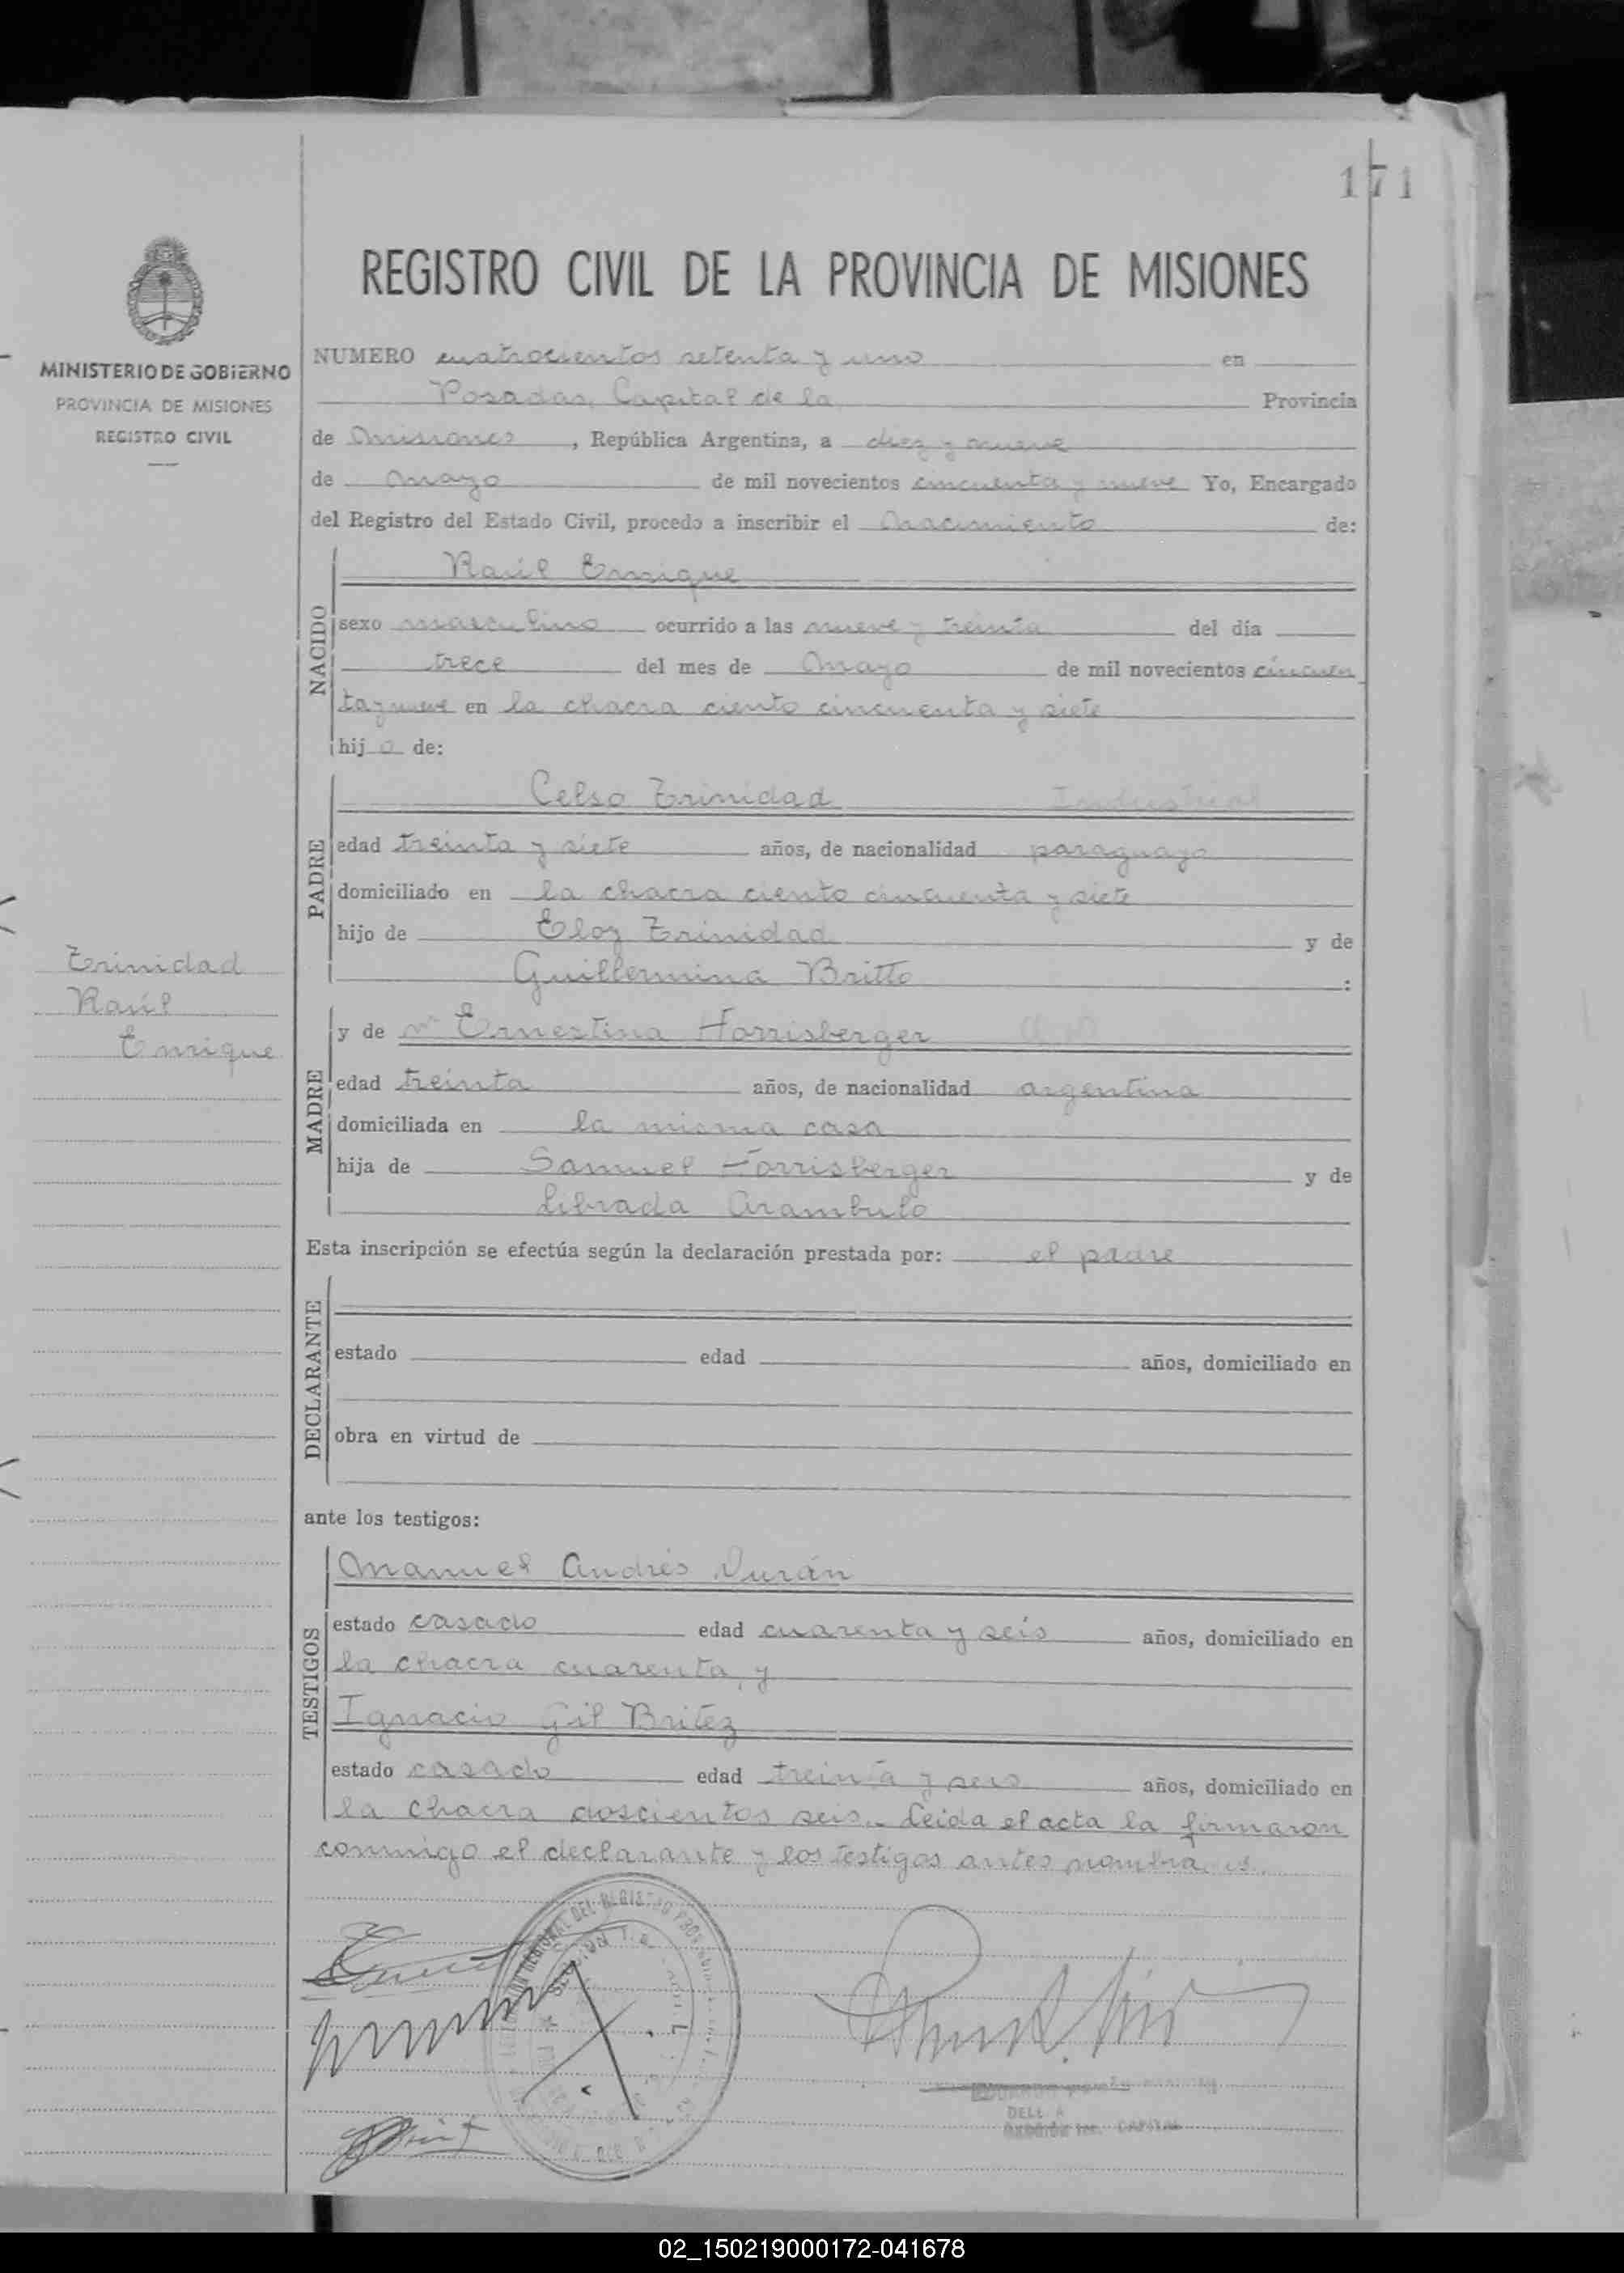 171
REGISTRO CIVIL DE LA PROVINCIA DE MISIONES
MINISTERIO DE GOBIERNO
PROVINCIA DE MISIONES
REGISTRO CIVIL
NUMERO cuatrocientos setenta y uno en
Posadas, Capital de la Provincia
de Misiones, República Argentina, a diez y nueve
de Mayo de mil novecientos cincuenta y nueve Yo, Encargado
del Registro del Estado Civil, procedo a inscribir el Nacimiento de:
NACIDO
Raúl Enrique
sexo masculino ocurrido a las nueve y treinta del día
trece del mes de Mayo de mil novecientos cincuen
ta y nueve en la chacra ciento cincuenta y siete
hijo de:
PADRE
Celso Trinidad Industrial
edad treinta y siete años, de nacionalidad paraguayo
domiciliado en la chacra ciento cincuenta y siete
hijo de Eloy Trinidad y de
Guillermina Britto :
Trinidad
Raúl
Enrique
MADRE
y de Ernestina Horrisberger
edad treinta años, de nacionalidad argentina
domiciliada en la misma casa
hija de Samuel Horrisberger y de
Librada Arambulo
Esta inscripción se efectúa según la declaración prestada por: el padre
DECLARANTE
estado edad años, domiciliado en
obra en virtud de
ante los testigos:
TESTIGOS
Manuel Andrés Durán
estado casado edad cuarenta y seis años, domiciliado en
la chacra cuarenta, y
Ignacio Gil Britez
estado casado edad treinta y seis años, domiciliado en
la chacra doscientos seis.- Leida el acta la firmaron
conmigo el declarante y los testigos antes nombrados.
CAPITAL
02_150219000172-041678